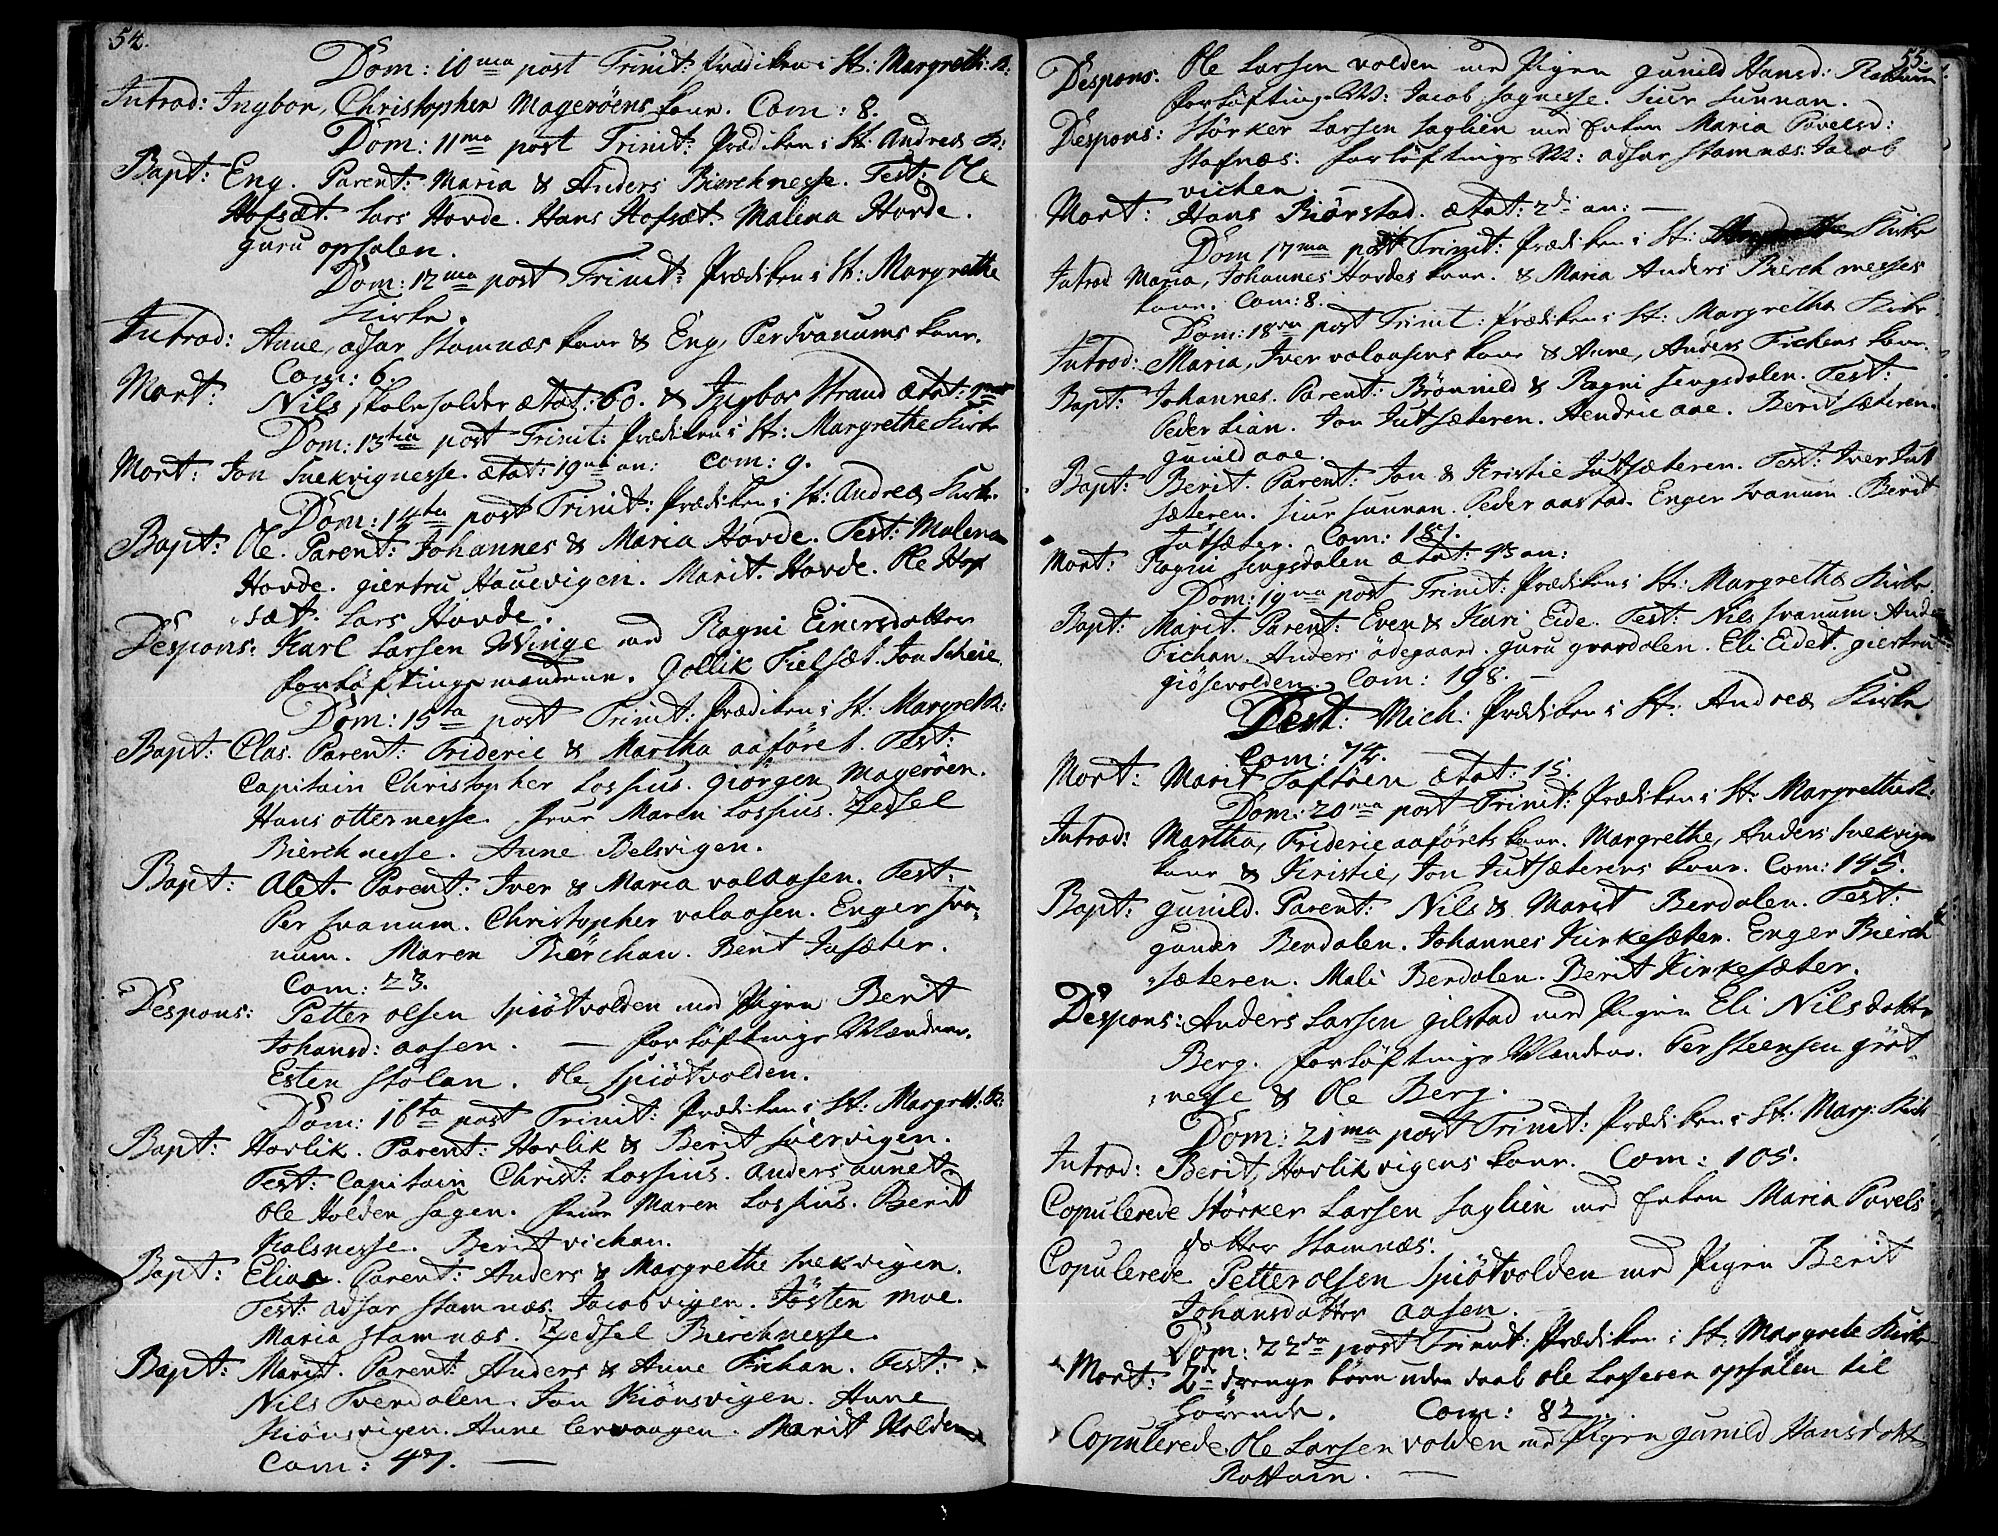 54.
Dom: 10ma post Trinit: Prædiken i St: Margreth: K:
Introd: Ingbor, Christopher Mageröens kone. Com: 8.
Dom: 11ma post Trinit: Prædiken i St: Andreæ K:
Bapt: Eng. Parent: Maria & Anders Bierchnesse. Test: Ole
Hofsæt. Lars Hovde. Hans Hofsæt. Malena Hovde.
guru opsalen.
Dom: 12ma post Trinit: Prædiken i St: Margrethe
Kirke.
Introd: Anne, adsar Stamnæs kone & Eng, Per Svanums kone.
Com: 6.
Mort: Nils skoleholder ætat: 60. & Ingbor Strand ætat:
Dom: 13tia post Trinit: Prædiken i St: Margrethe Kirke
Mort: Jon Snekvignesse. ætat: 19 an: Com: 9.
Dom: 14ta post Trinit: Prædiken i St: Andreæ Kirke.
Bapt: Ole. Parent: Johannes & Maria Hovde. Test: Malena
Hovde. giertru Hauevigen. Marit Hovde. Ole Hof
sæt. Lars Hovde.
Despons: Karl Larsen Winge med Ragni Einersdatter
forlöftingsmændene. Gollik Fielsæt. Jon Scheie.
Dom: 15ta post Trinit: Prædiken i St: Margreth:
Bapt: Clas. Parent: Frideric & Martha aaföret. Test:
Capitain Christopher Lossius. Giörgen Mageröen.
Hans otternesse. frue Maren Lossius. Zedsel
Bierchnesse. Anne Belsvigen.
Bapt: Alet. Parent: Iver & Maria valaasen. Test:
Per Svanum. Christopher valaasen. Enger Sva-
num. Maren Biörchan. Berit Jusæter.
Com: 23.
Despons: Petter olsen Spiötvolden med Pigen Berit
Johansd: aasen. — forlöftings Mændene.
Esten Stölan. Ole Spiötvolden.
Dom: 16ta post Trinit: Prædiken i St: Margret: K:
Bapt: Hovlik. Parent: Hovlik & Berit Svervigen.
Test: Capitain Christ: Lossius. Anders aunet.
Ole Holden Sagen. frue Maren Lossius. Berit
Kalsnesse. Berit vichan.
Bapt: Elias. Parent: Anders & Margrethe Snekvigen.
Test: adsar Stamnæs. Jacob vigen. Jösten moe.
Maria Stamnæs. Zedsel Bierchnesse.
Bapt: Marit. Parent: Anders & Anne Fichan. Test:
Nils Sverdalen. Jon Kiönsvigen. Anne
Kiönsvigen. Anne lervaagen. Marit Holden
Com: 47. —
55.
Despons: Ole Larsen volden med Pigen gunild Hansd: Rottum
forlöftings M: Jacob Sagnesse. Siur Sunnan.
Despons: Störker Larsen Saglien med Enken Maria Povelsd:
Stafnæs. forlöftings M: adsar Stamnæs. Jacob
vichen. —
Mort: Hans Biörstad. ætat: 2di an: —
Dom 17ma post Trinit: Prædiken i St: Kirke
Introd Maria, Johannes Hovdes kone. & Maria Anders Bierchnesses
kone. Com: 8.
Dom: 18va post Trinit: Prædiken i St: Margretha Kirke.
Introd: Maria, Iver valaasens kone & Anne, Anders Fichens kone.
Bapt: Johannes. Parent: Brönnild & Ragni Sengsdalen. Test:
Peder Lian. Jon Jutsæteren. Hendric aae. Berit sæteren.
gunild aae.
Bapt: Berit. Parent: Jon & Kristie Jutsæteren. Test: Iver Jut
sæteren. Siur Sunnan. Peder aastad. Enger Svanum. Berit
Jutsæter. Com: 181.
Mort: Ragni Sengsdalen ætat: 43 an:
Dom: 19na post Trinit: Prædiken i St: Margretha Kirke
Bapt: Marit. Parent: Even & Kari Eide. Test: Nils Svanum. Ande
Fichan. Anders ödegaard. guru gravdalen. Eli Eidet. giertru
giösevolden. Com: 198. —
Fest: Mich: Prædiken i St: Andreæ Kirke
Com: 74.
Mort: Marit Taftöen ætat: 15.
Dom: 20ma post Trinit: Prædiken i St: Margrethe K:
Introd: Martha, Frideric aaförets kone. Margrethe, Anders Snekvigen
kone & Kristie, Jon Jutsæterens kone. Com: 145.
Bapt: gunild. Parent: Nils & Marit Berdalen. Test:
gunder Berdalen. Johannes Kirkesæter. Enger Bierch
sæteren. Mali Berdalen. Berit Kirkesæter.
Despons: Anders Larsen gilstad med Pigen Eli Nilsdatter
Berg. forlöftings Mændene. Per Steensen gröt
nesse & Ole Berg.
Dom: 21ma post Trinit: Prædiken i St: Marg: Kirk
Introd: Berit, Hovlik vigens kone. Com: 105.
Copulerede Störker Larsen Saglien med Enken Maria Povels
datter Stamnæs.
Copulerede Petter olsen Spiötvolden med Pigen Berit
Johansdatter aasen.
Dom: 22da post Trinit: Prædiken i St: Margrete Kirke
Mort: 2de drenge börn uden daab ole Lassesen opsalen til
hörende. Com: 82.
Copulerede. Ole Larsen volden med Pigen gunild Hansdatt
Rottum. —